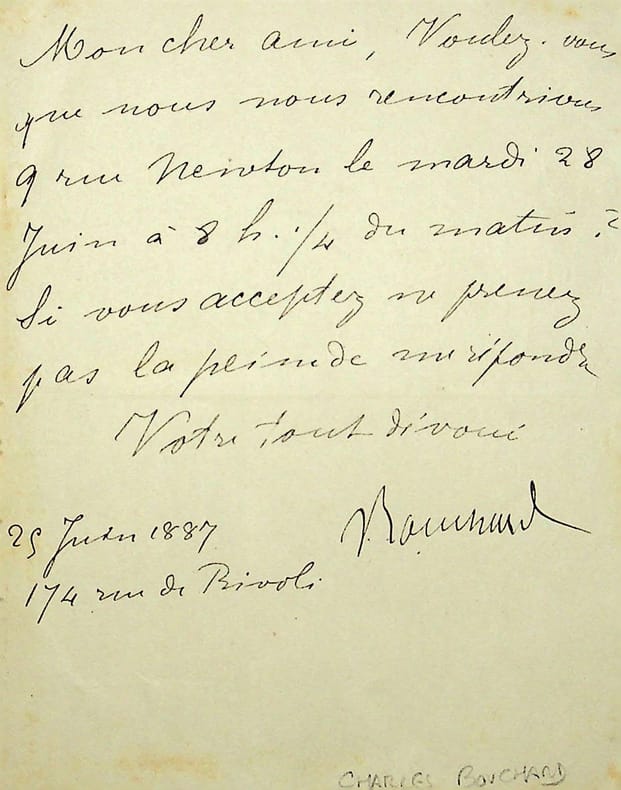 Mon cher ami, Voulez-vous
que nous nous rencontrions
9 rue Newton le mardi 28
Juin à 8 h. 1/4 du matin ?
Si vous acceptez ne prenez
pas la peine de me répondre
Votre tout dévoué
Bouchard
25 Juin 1887
174 rue de Rivoli
CHARLES BOUCHARD